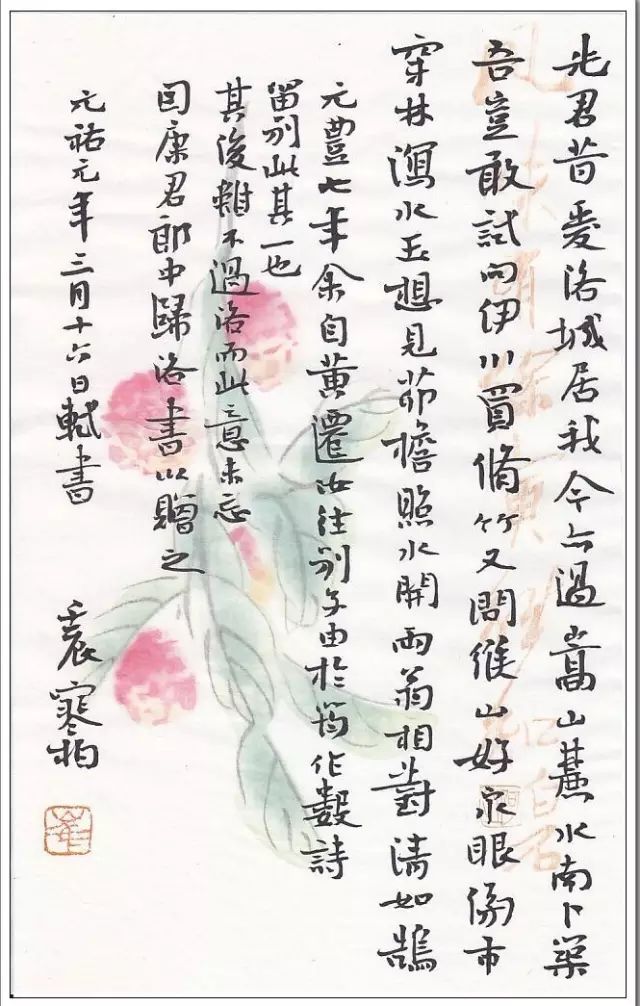 先君昔愛洛城居我今亦過嵩山麓水南卜築
吾豈敢試向伊川買脩竹又問緱山好泉眼傍市
穿林瀉水玉想見茆檐照水開兩翁相對清如鵠
元豐七年余自黃遷汝往別子由於筠作數詩
留別此其一也
其後雖不過洛而此意未忘
因康君郎中歸洛書以贈之
元祐元年三月十六日軾書
壬辰寒柏